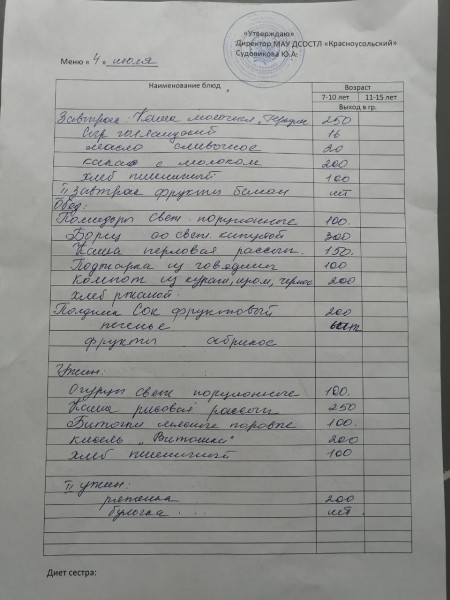 «Утверждаю»
Директор МАУ ДСОСТЛ «Красноусольский»
Судовикова Ю.А.
Меню « 4 » июля
Наименование блюд Возраст
7-10 лет 11-15 лет
Выход в гр.
Завтрак: Каша молочная 250
Сыр голландский 16
масло сливочное 20
какао с молоком 200
хлеб пшеничный 100
II Завтрак фрукты банан шт
Обед:
Помидоры свеж. порционные 100.
Борщ со свеж. капустой 300
Каша перловая рассып. 150.
Поджарка из говядины 100
Компот из кураги, изюм, чернос 200
Хлеб ржаной.
Полдник Сок фруктовый 200
печенье
фрукты абрикос
Ужин:
Огурцы свеж порционные 100.
Каша рисовая рассып 250
Биточки мясные паровые 100.
кисель „Витошка" 200
хлеб пшеничный 100
II ужин:
ряженка 200
булочка ... шт.
Диет сестра: